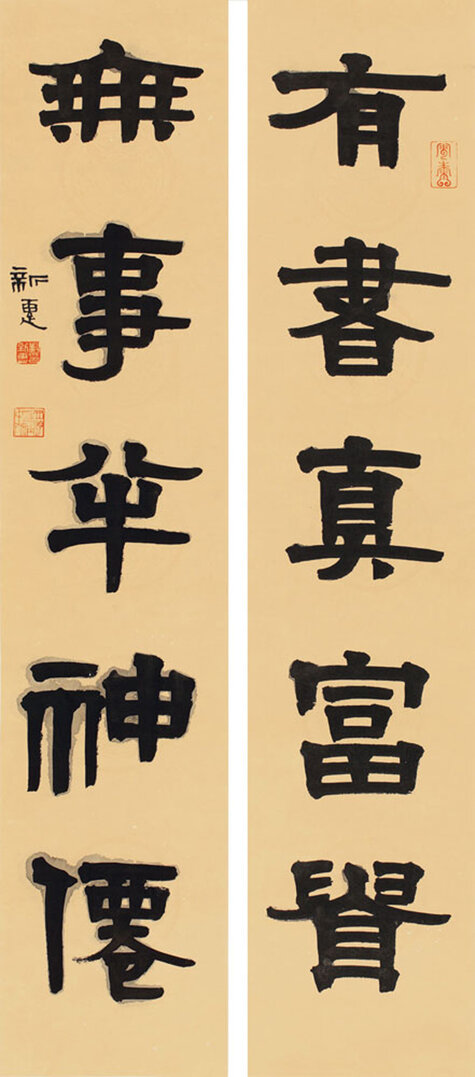 有書真富貴
無事半神僊
新惠